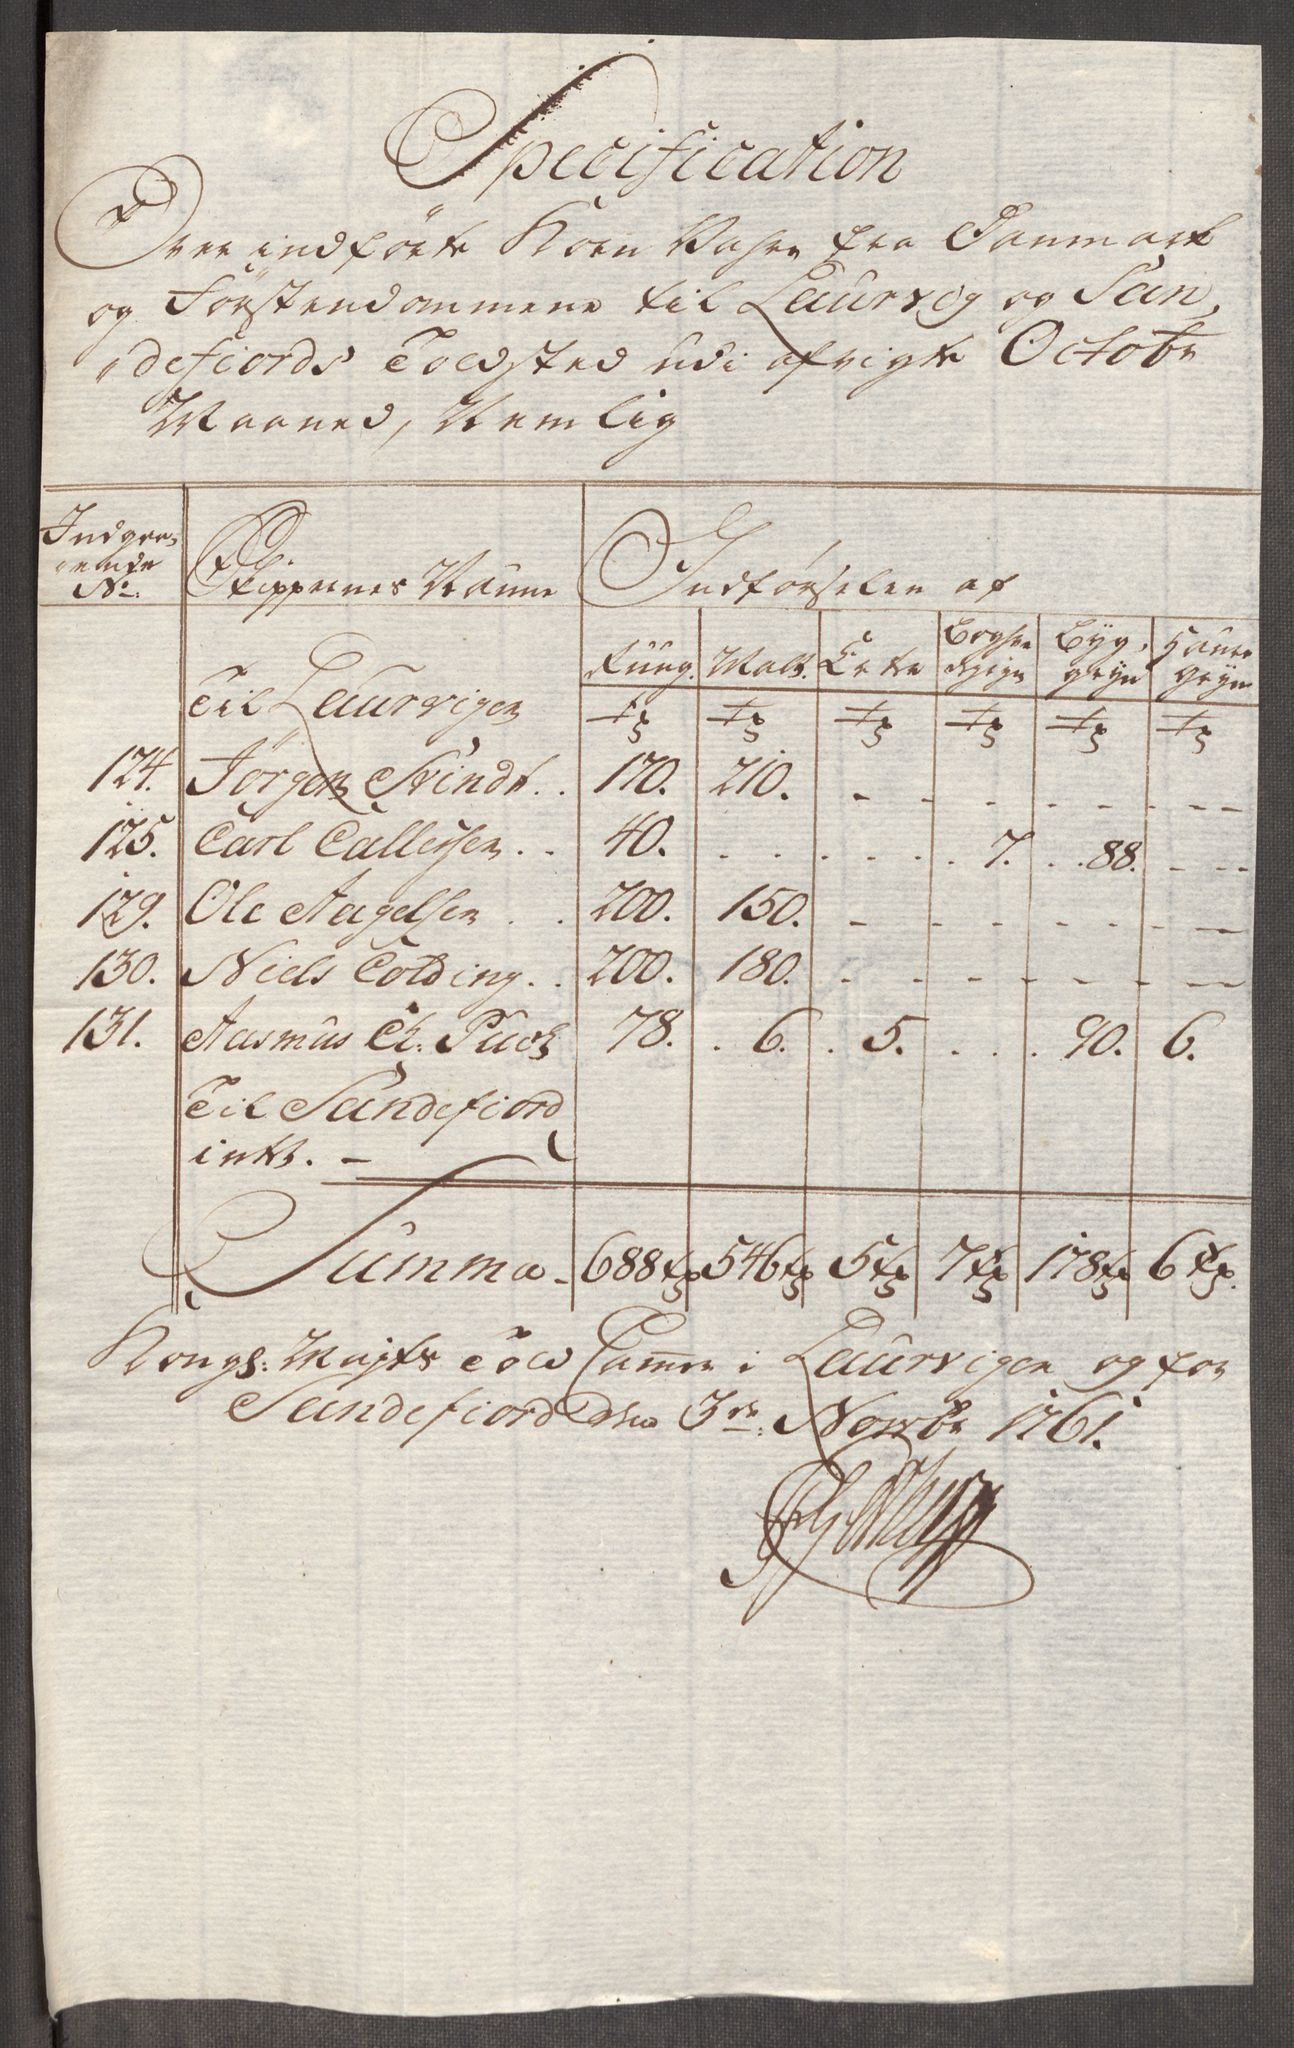 Specification
Over indførte Korn Vahre fra Danmark
og Førstendommene til Laurvig og San,
defiords Toldsted udi afvigte Octobr
Maaned, Nemlig
Indgaa,
ende
No: Skippernes Navne Indførselen af
Rung. Malt. Erter Boghve Byg, Haure
gryn gryn gryn
Til Laurvigen Tr Tr Tr Tr Tr Tr
124. Jørgen Svindt . . 170. 210. - - - - - - - -
125. Carl Callessen . . 40. . . . . . . 7. . . 88. - - -
129. Ole Aagelsen . . 200. 150. - - - - - - - -
130. Niels Colding . . 200. 180. - - - - - - - -
131. Aasmus Ch. Puck 78. . 6. . 5. . . . 90. 6.
Til Sandefiord
intet. -
Summa - 688 Tr 546 Tr 5 Tr 7 Tr 178 Tr 6 Tr.
Kongl: Mayts Told Cammer i Laurvigen og for
Sandefiord den 3de: Novbr 1761.